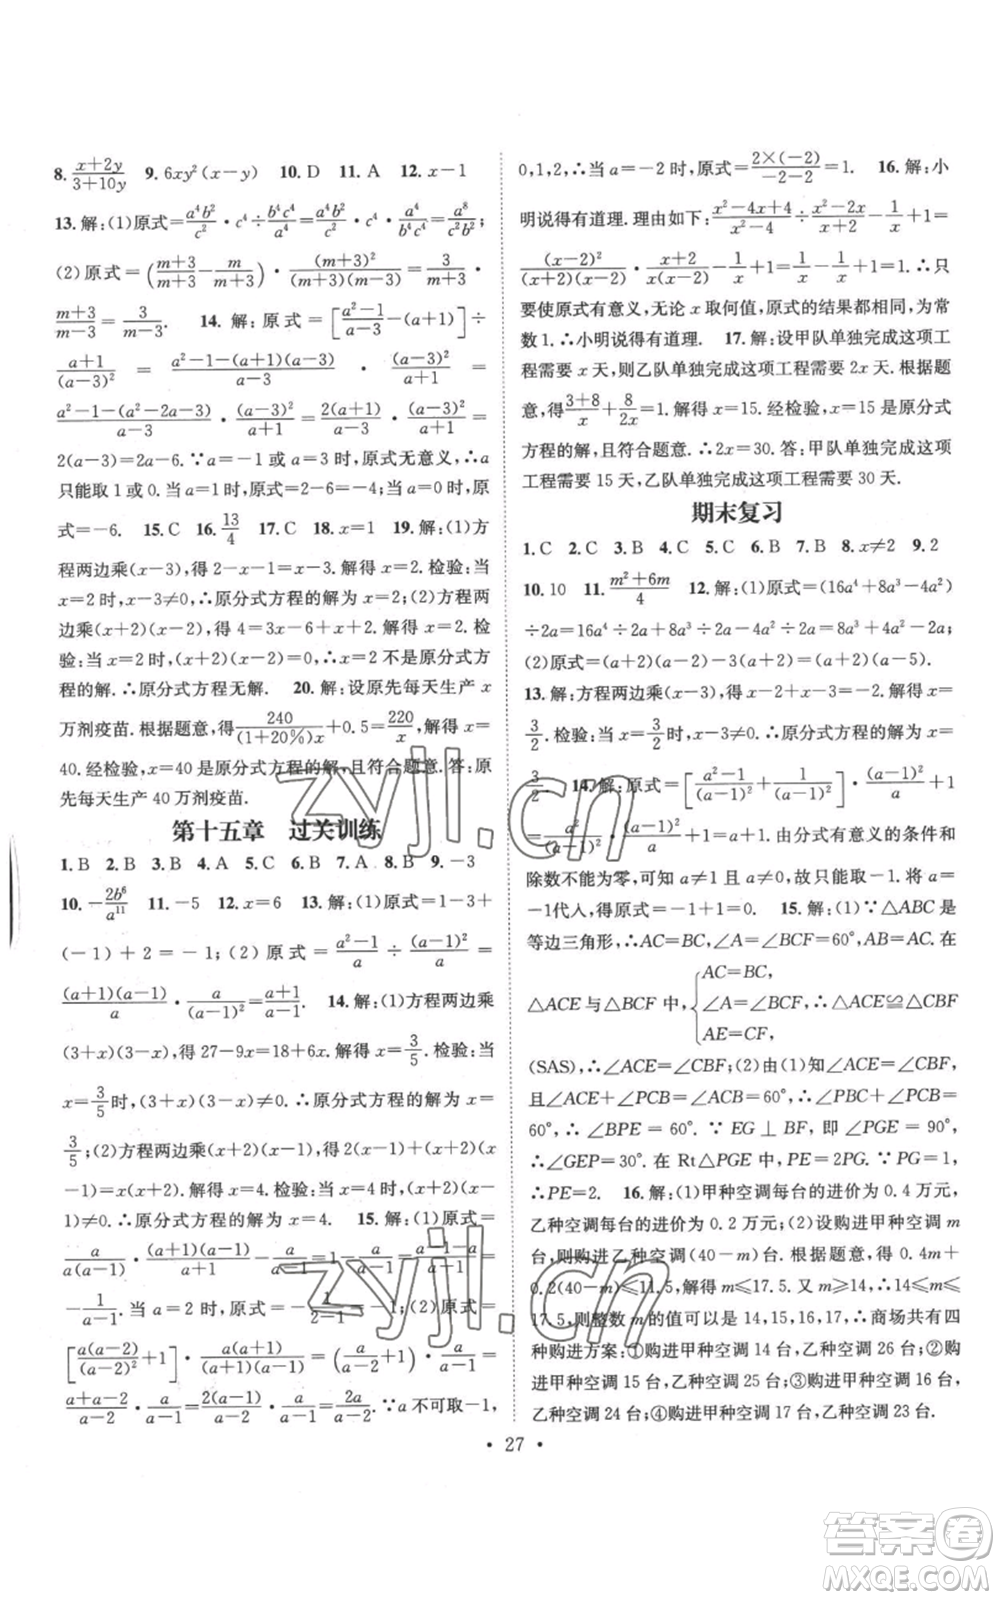 8. \frac{x+2y}{3+10y}  9. 6xy²(x-y)  10. D  11. A  12. x-1
13. 解:(1)原式=\frac{a⁴b²}{c²}·c⁴÷\frac{b⁴c⁴}{a⁴}=\frac{a⁴b²}{c²}·c⁴·\frac{a⁴}{b⁴c⁴}=\frac{a⁸}{b²c²};
(2)原式=(\frac{m+3}{m-3}-\frac{m}{m+3})·\frac{(m+3)²}{(m+3)(m-3)}=\frac{3}{m+3}·
\frac{m+3}{m-3}=\frac{3}{m-3}.  14. 解:原式=[\frac{a²-1}{a-3}-(a+1)]÷
\frac{a+1}{(a-3)²} = \frac{a²-1-(a+1)(a-3)}{a-3} · \frac{(a-3)²}{a+1} =
\frac{a²-1-(a²-2a-3)}{a-3}·\frac{(a-3)²}{a+1}=\frac{2(a+1)}{a-3}·\frac{(a-3)²}{a+1}=
2(a-3)=2a-6.∵a=-1或a=3时,原式无意义,∴a
只能取1或0.当a=1时,原式=2-6=-4(当a=0时,原
式=-6.  15. C  16. \frac{13}{4}  17. C  18. x=1  19. 解:(1)方
程两边乘(x-3),得x-1=2x-6+3.解得x=2.检验:当
x=2时,x-3≠0,∴原分式方程的解为x=2;(2)方程两
边乘(x+2)(x-2),得4=3x-6+x+2.解得x=2.检
验:当x=2时,(x+2)(x-2)=0,∴x=2不是原分式方
程的解.∴原分式方程无解.  20. 解:设原先每天生产x
万剂疫苗.根据题意,得\frac{240}{(1+20%)x}+0.5=\frac{220}{x},解得x=
40.经检验,x=40是原分式方程的解,且符合题意.答:原
先每天生产40万剂疫苗.
第十五章 过关训练
1. B  2. B  3. B  4. A  5. C  6. B  7. A  8. B  9. -3
10. -\frac{2b⁶}{a¹¹}  11. -5  12. x=6  13. 解:(1)原式=1-3+
(-1)+2=-1;(2)原式=\frac{a²-1}{a}÷\frac{(a-1)²}{a}=
\frac{(a+1)(a-1)}{a}·\frac{a}{(a-1)²}=\frac{a+1}{a-1}.  14. 解:(1)方程两边乘
(3+x)(3-x),得27-9x=18+6x.解得x=\frac{3}{5}.检验:当
x=\frac{3}{5}时,(3+x)(3-x)≠0.∴原分式方程的解为x=
\frac{3}{5};(2)方程两边乘(x+2)(x-1),得2(x-1)+(x+2)(x-
1)=x(x+2).解得x=4.检验:当x=4时,(x+2)(x-
1)≠0.∴原分式方程的解为x=4.  15. 解:(1)原式=
\frac{a}{a(a-1)}·\frac{(a+1)(a-1)}{a}-\frac{a+1}{a-1}
-\frac{1}{a-1}.当a=-2时,原式=-\frac{1}{-2-1}
[\frac{a(a-2)}{(a-2)²}+1]·\frac{a}{a-1}=(\frac{a}{a-2}+1)·\frac{a}{a-1}=
\frac{a+a-2}{a-2}·\frac{a}{a-1}=\frac{2(a-1)}{a-2}·\frac{a}{a-1}=\frac{2a}{a-2}.∵a不可取-1,
0,1,2,∴当a=-2时,原式=\frac{2×(-2)}{-2-2}=1.  16. 解:小
明说得有道理.理由如下:\frac{x²-4x+4}{x²-4}÷\frac{x²-2x}{x+2}-\frac{1}{x}+1=
\frac{(x-2)²}{(x+2)(x-2)}·\frac{x+2}{x(x-2)}-\frac{1}{x}+1=\frac{1}{x}-\frac{1}{x}+1=1.∴只
要使原式有意义,无论x取何值,原式的结果都相同,为常
数1.∴小明说得有道理.  17. 解:设甲队单独完成这项工
程需要x天,则乙队单独完成这项工程需要2x天.根据题
意,得\frac{3+8}{x}+\frac{8}{2x}=1.解得x=15.经检验,x=15是原分式
方程的解,且符合题意.∴2x=30.答:甲队单独完成这项
工程需要15天,乙队单独完成这项工程需要30天.
期末复习
1. C  2. C  3. B  4. C  5. C  6. B  7. B  8. x≠2  9. 2
10. 10  11. \frac{m²+6m}{4}  12. 解:(1)原式=(16a⁴+8a³-4a²)
÷2a=16a⁴÷2a+8a³÷2a-4a²÷2a=8a³+4a²-2a;
(2)原式=(a+2)(a-2)-3(a+2)=(a+2)(a-5).
13. 解:方程两边乘(x-3),得x-2+x-3=-2.解得x=
\frac{3}{2}.检验:当x=\frac{3}{2}时,x-3≠0.∴原分式方程的解为x=
\frac{3}{2}.  14. 解:原式=[\frac{a²-1}{(a-1)²}+\frac{1}{a-1}]·\frac{(a-1)²}{a}+1
=\frac{a²}{(a-1)²}·\frac{(a-1)²}{a}+1=a+1.由分式有意义的条件和
除数不能为零,可知a≠1且a≠0,∴只能取a=-1.将a=
-1代人,得原式=-1+1=0.  15. 解:(1)∵△ABC是
等边三角形,∴AC=BC,∠A=∠BCF=60°,AB=AC.在
△ACE与△BCF中,{AC=BC,
∠A=∠BCF,∴△ACE≌△CBF
AE=CF,
(SAS),∴∠ACE=∠CBF;(2)由(1)知∠ACE=∠CBF,
且∠ACE+∠PCB=∠ACB=60°,∴∠PBC+∠PCB=
60°,∴∠BPE=60°.∵EG⊥BF,即∠PGE=90°,
∴∠GEP=30°.在Rt△PGE中,PE=2PG.∵PG=1,
∴PE=2.  16. 解:(1)甲种空调每台的进价为0.4万元,
乙种空调每台的进价为0.2万元;(2)设购进甲种空调m
台,则购进乙种空调(40-m)台.根据题意,得0.4m+
0.2(40-m)≤11.5,解得m≤17.5.又m≥14,∴14≤m≤
17.5,则整数m的值可以是14,15,16,17,∴商场共有四
种购进方案:①购进甲种空调14台,乙种空调26台;②购
进甲种空调15台,乙种空调25台;③购进甲种空调16台,
乙种空调24台;④购进甲种空调17台,乙种空调23台.
·27·
zyjl.cn
zyjl.cn
答案圈
MXQE.COM